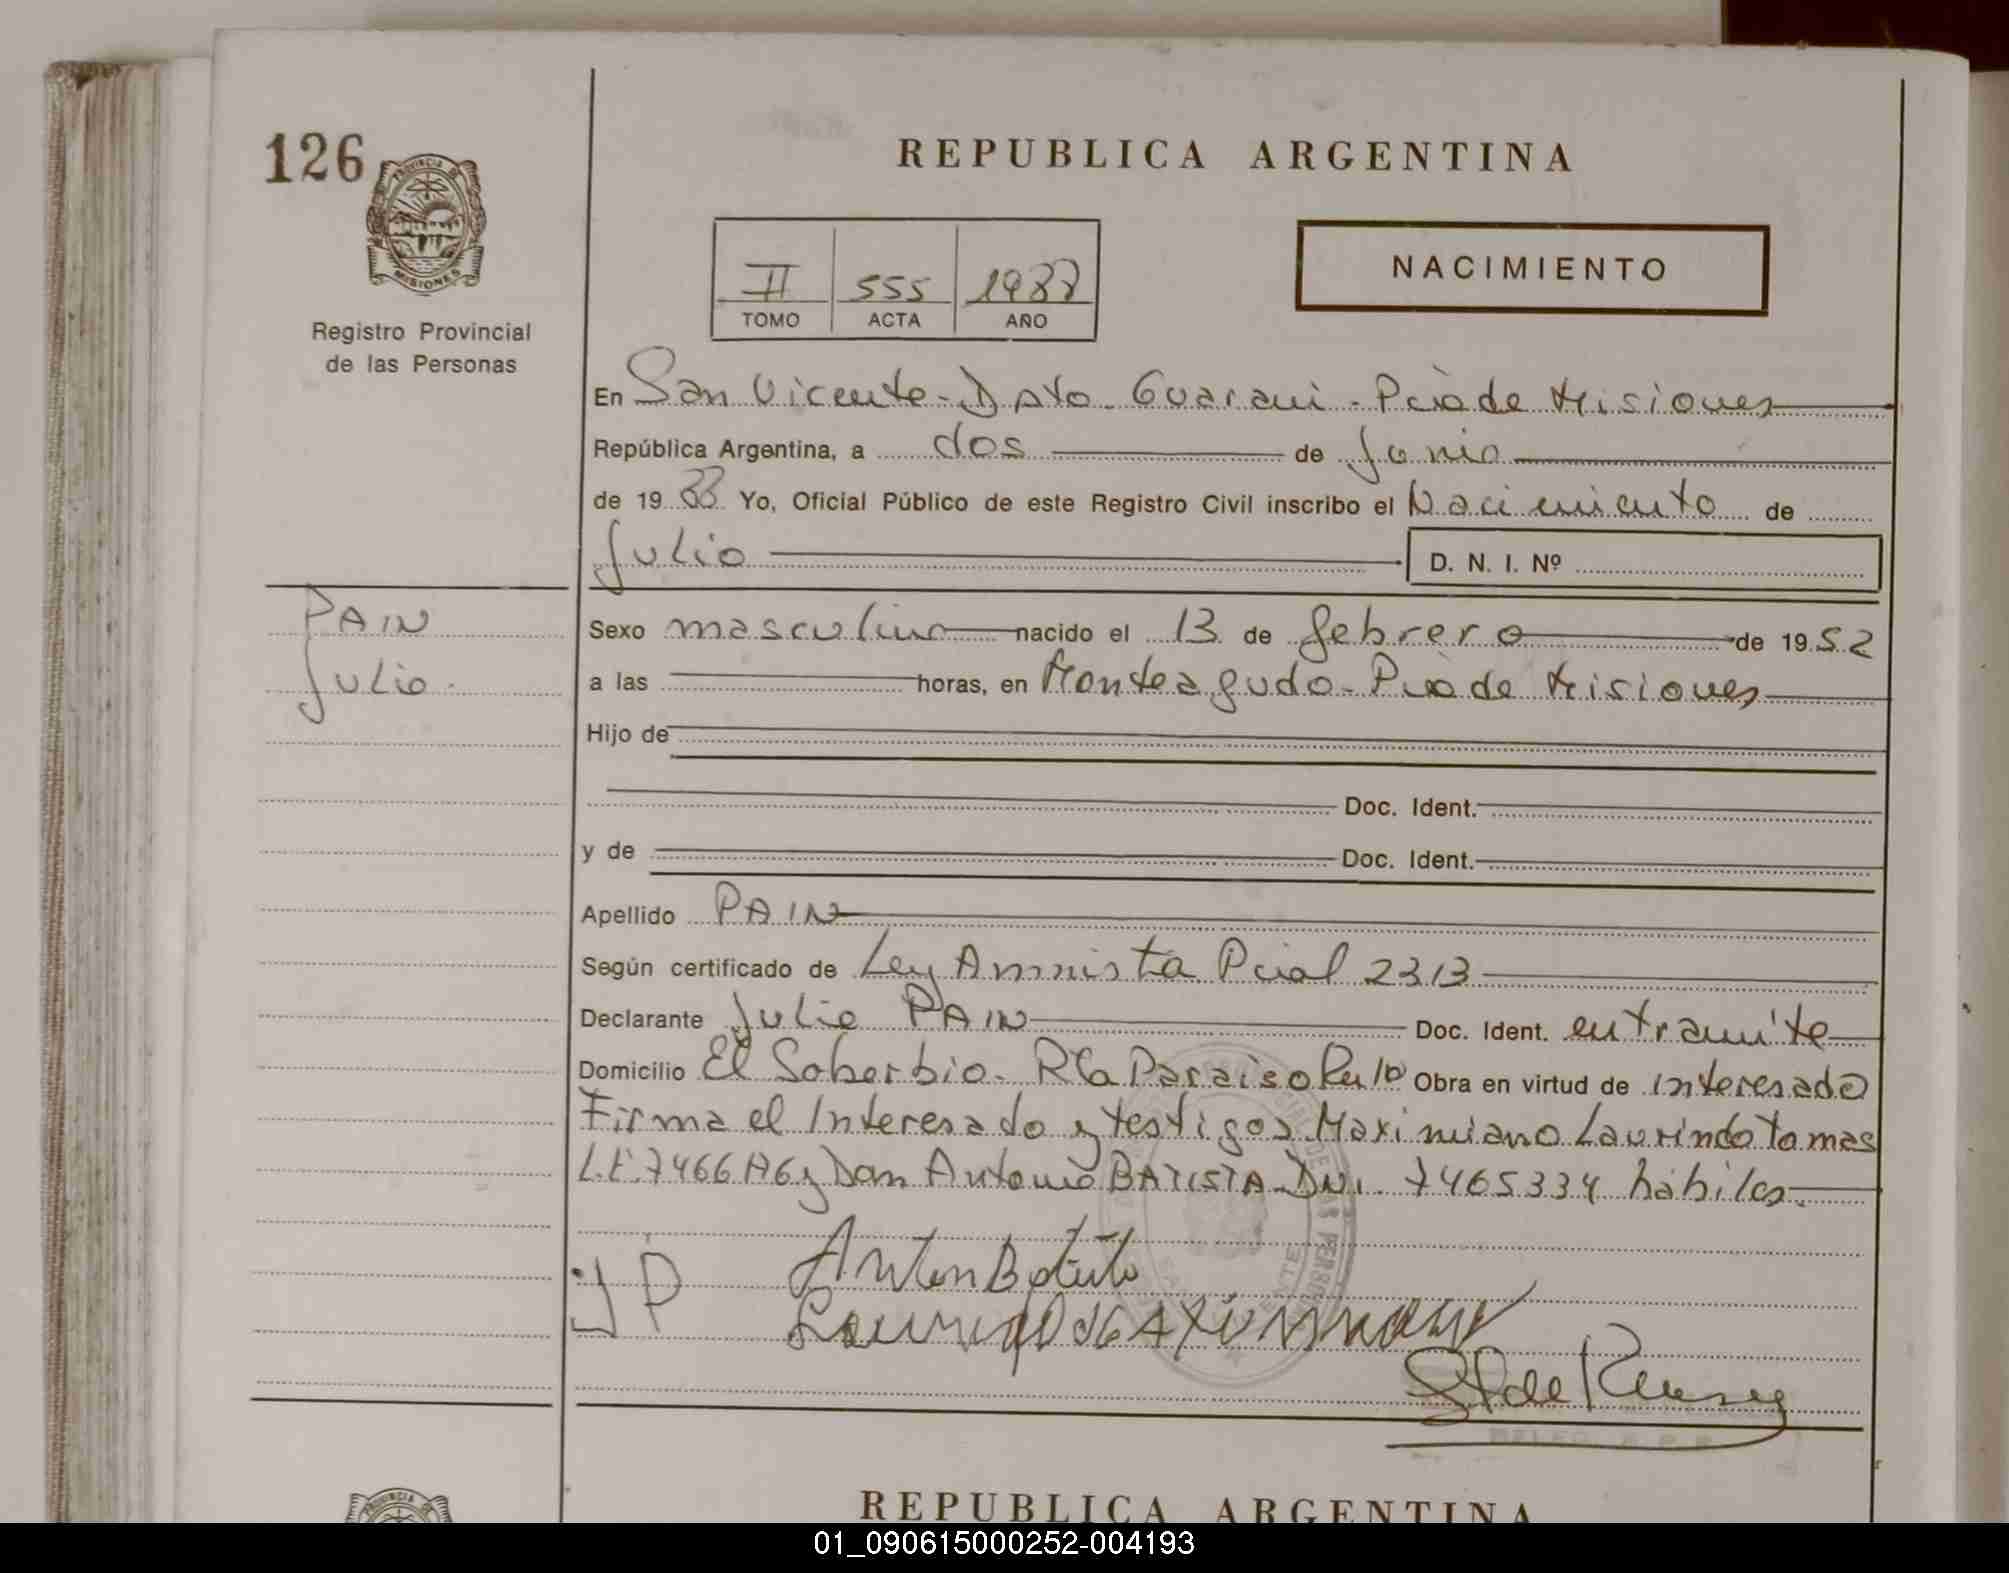 126
PROVINCIA DE
MISIONES
Registro Provincial
de las Personas
REPUBLICA ARGENTINA
II 555 1988
TOMO ACTA AÑO
NACIMIENTO
En San Vicente - Dpto. Guarani - Pcia de Misiones
República Argentina, a dos de Junio
de 19 88 Yo, Oficial Público de este Registro Civil inscribo el Nacimiento de
Julio D. N. I. Nº
PAIN
Julio.
Sexo masculino nacido el 13 de febrero de 19 52
a las horas, en Monteagudo - Pcia de Misiones
Hijo de
Doc. Ident.
y de Doc. Ident.
Apellido PAIN
Según certificado de Ley Amnistia Pcial 2313
Declarante Julio PAIN Doc. Ident. en tramite
Domicilio El Soberbio - Paraiso Obra en virtud de interesado
Firma el Interesado y testigos Maximiano Laurindo tomas
L.E. 7466 y Don Antonio BATISTA DNI. 7465334 habiles.
JP
REPUBLICA ARGENTINA
PROVINCIA DE
01_090615000252-004193